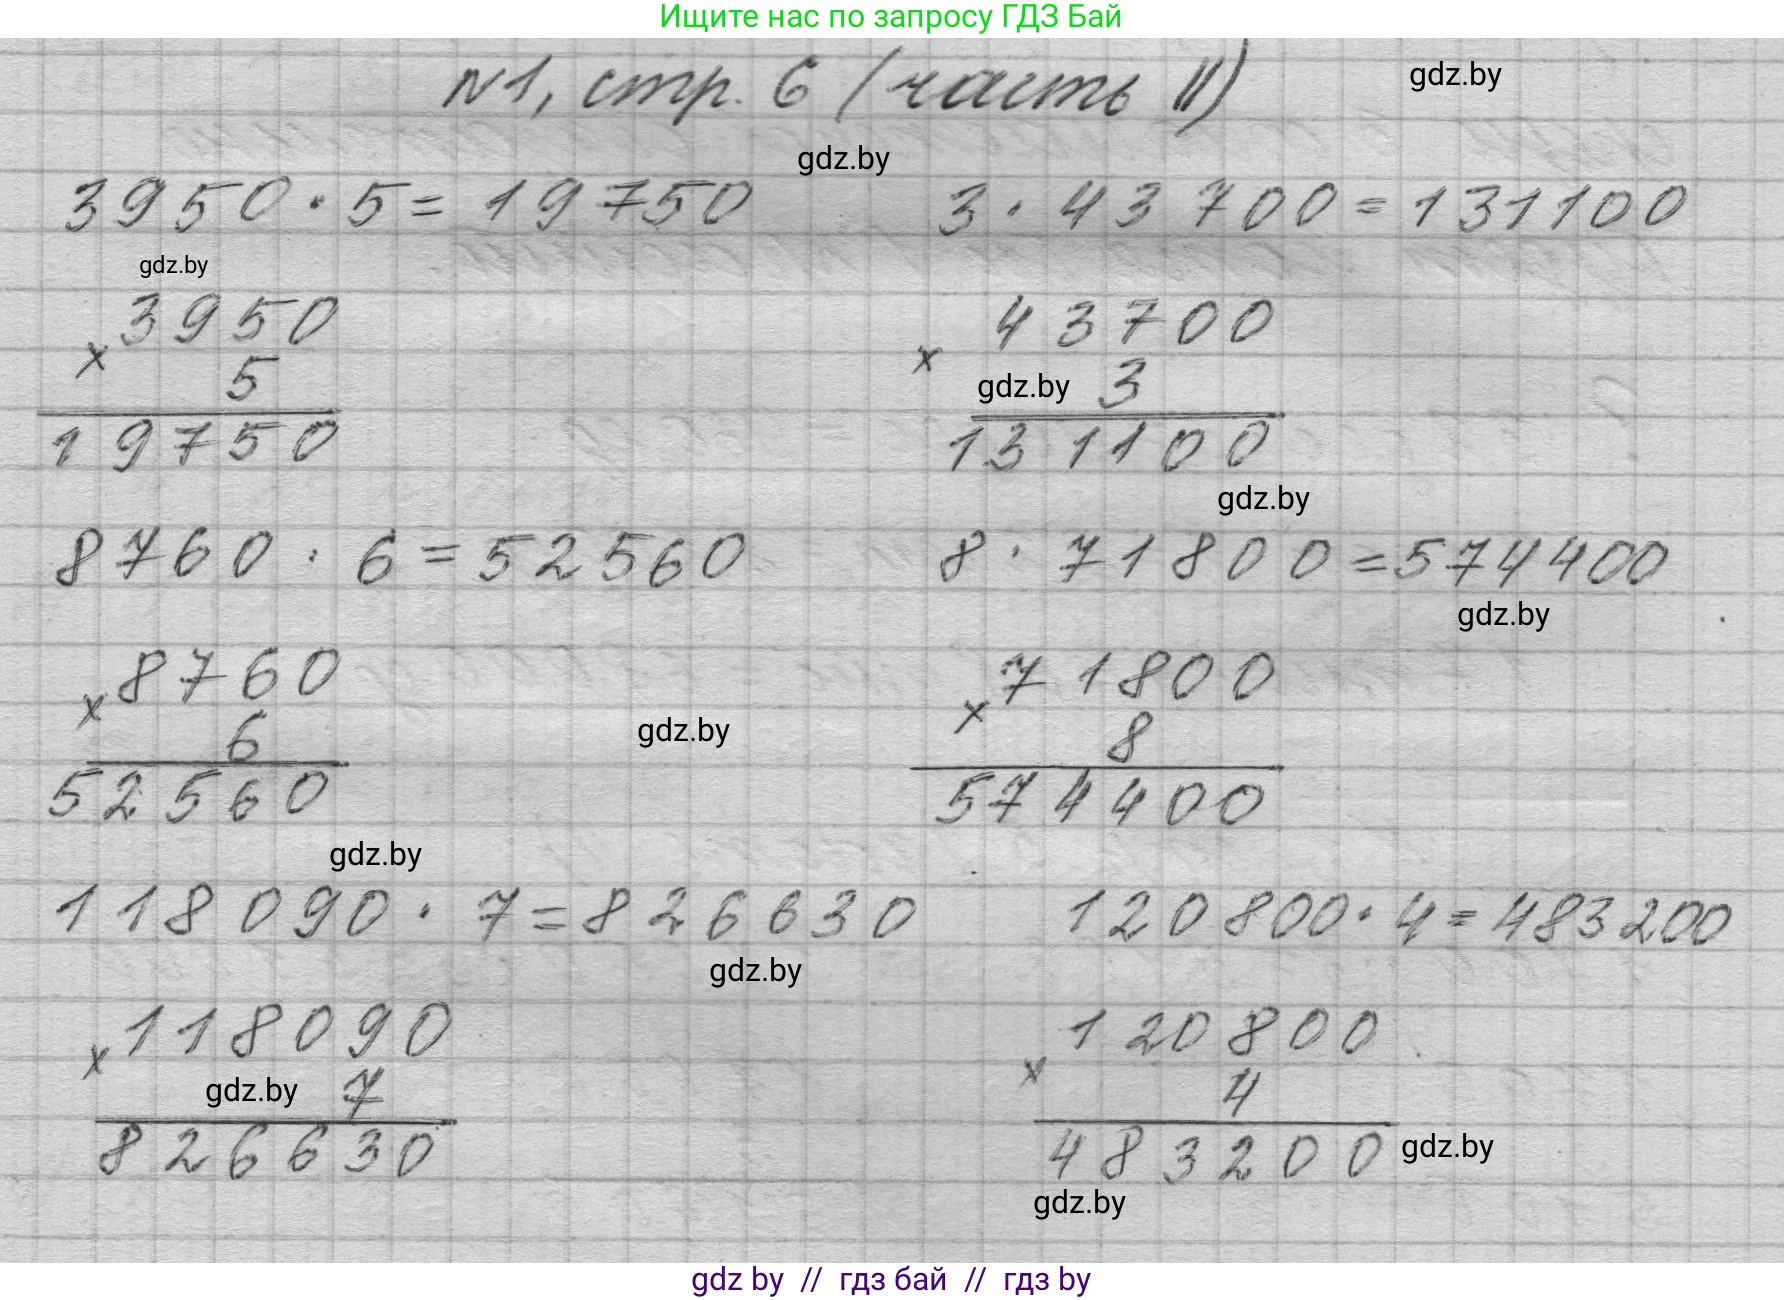 Ищите нас по запросу ГДЗ Бай
№1, стр. 6 (часть II)
gdz.by
gdz.by
3950 · 5 = 19750
3 · 43700 = 131100
gdz.by
3950
× 5
19750
43700
× gdz.by 3
131100
gdz.by
8760 · 6 = 52560
8 · 71800 = 574400
gdz.by
8760
× 6
52560
gdz.by
71800
× 8
574400
gdz.by
118090 · 7 = 826630
120800 · 4 = 483200
gdz.by
118090
× gdz.by 7
826630
120800
× 4
483200
gdz.by
gdz.by
gdz by // гдз бай // гдз by